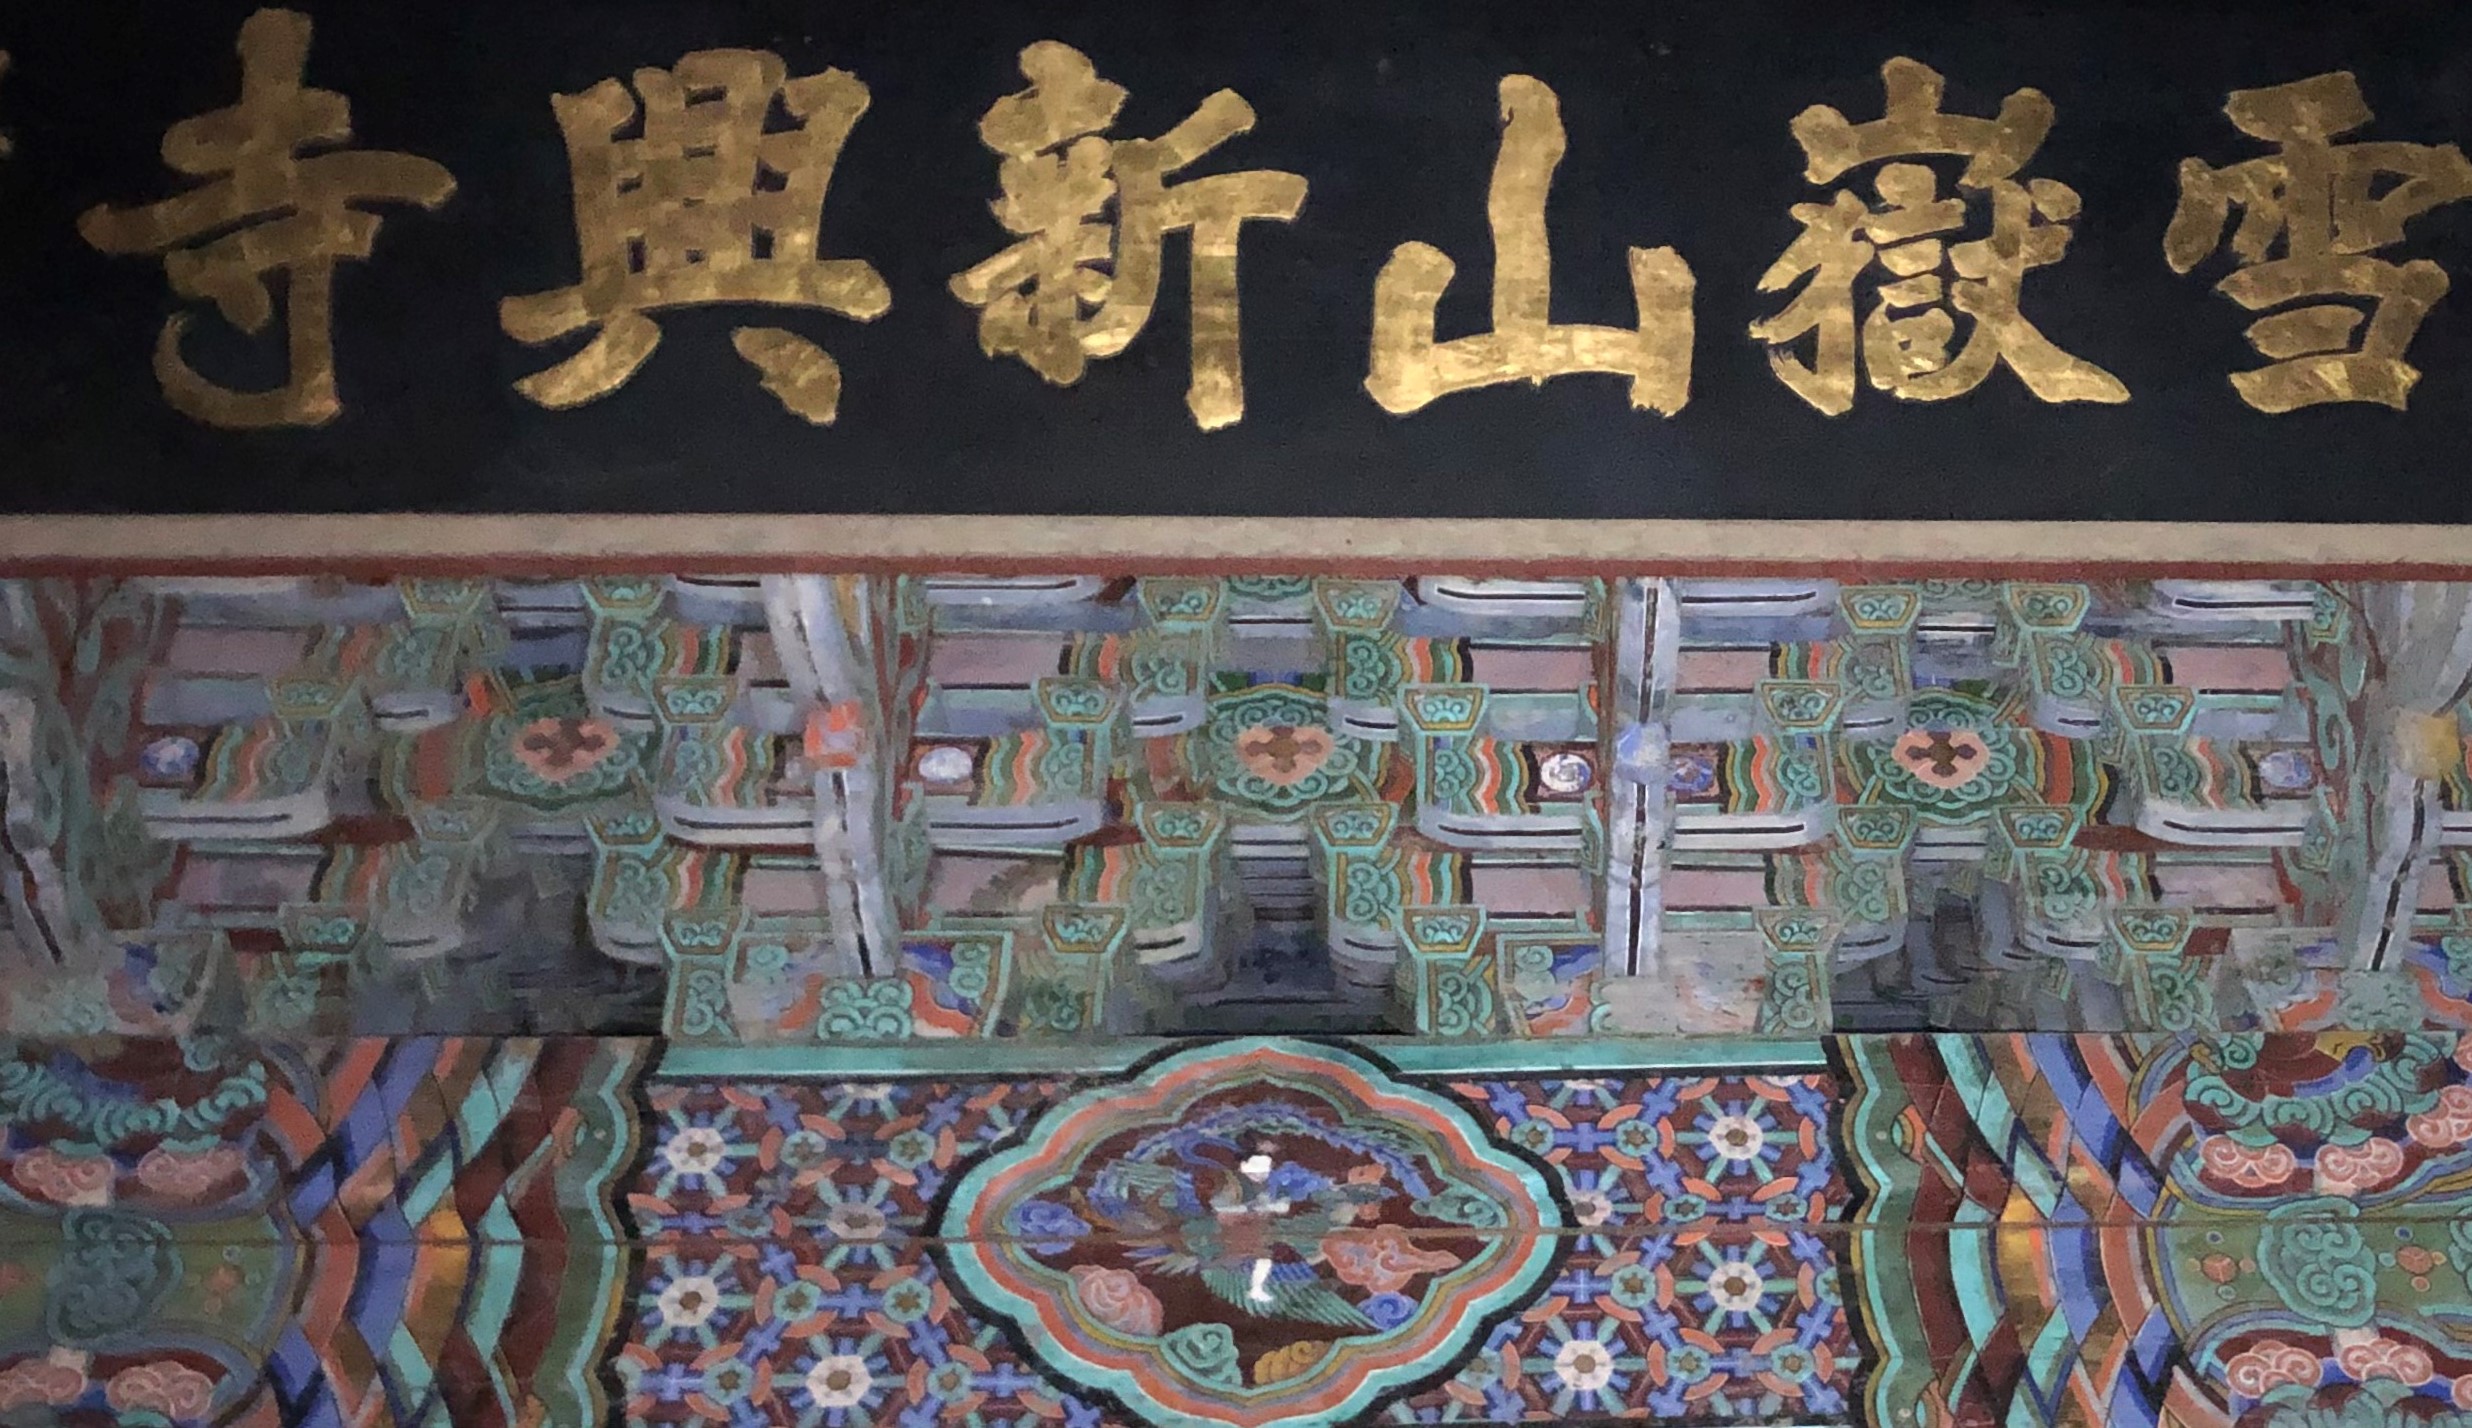 雪嶽山新興寺